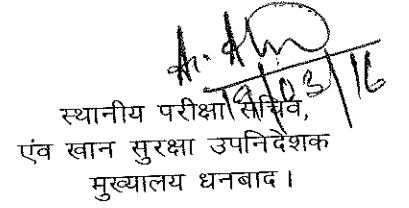 19/03/16
स्थानीय परीक्षा सचिव,
एंव खान सुरक्षा उपनिदेशक
मुख्यालय धनबाद।